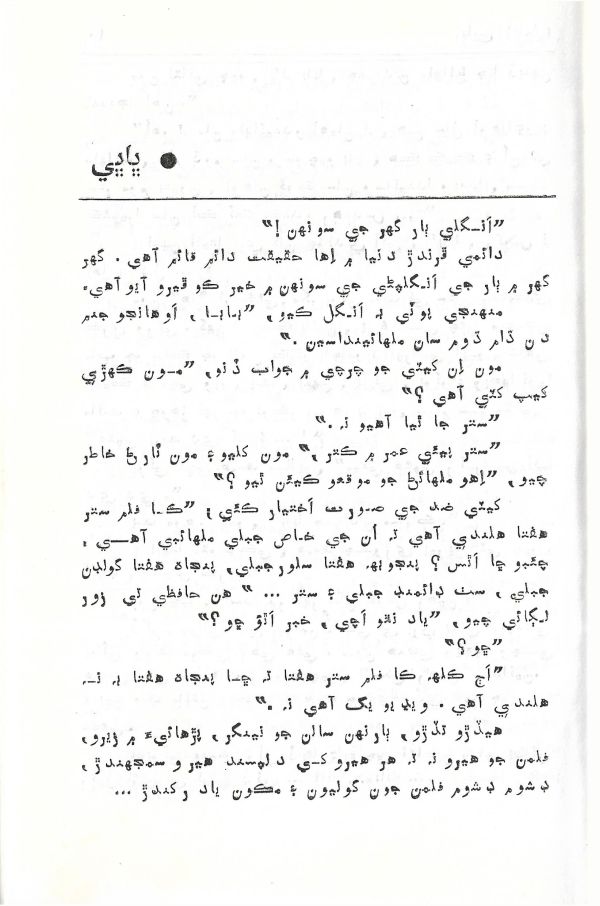 ڀاڀي
”آنگلي ٻار گهر جي سونهن!“
دائمي ڦرندڙ دنيا ۾ اِها حقيقت دائم قائم آهي. گهر
گهر ۾ ٻار جي آنگلپڻي جي سونهن ۾ خير ڪو ڦيرو آيو آهي.
منهنجي پوٽي بہ آنگل ڪيو، ”بابا، اَوهانجو جنم
دن ڌام ڌوم سان ملهائينداسين.“
مون اِن ڳيتي جو چرچي ۾ جواب ڏنو، ”مون ڪهڙي
کيپ کٽي آهي؟“
”ستر جا ٿيا آهيو نہ.“
”ستر ٻيٽي عمر ۾ ڪتر،“ مون کليو ۽ مون ٽارڻ خاطر
چيو، ”اِهو ملهائڻ جو موقعو ڪيئن ٿيو؟“
ضد جي صورت اختيار ڪئي؛ ”ڪا فلم ستر
هفتا هلندي آهي تہ اُن جي خاص جبلي ملهائبي آهي.
چئبو ڇا اٿس؟ پنجويهہ هفتا سلورجبلي، پنجاهہ هفتا گولڊن
جبلي، سٺ ڊائمنڊ جبلي ۽ ستر ...“ هن حافظي تي زور
لڳائي چيو، ”ياد نٿو اَچي، خبر اَٿوَ ڇو؟“
”ڇو؟“
”اَڄ ڪلهہ ڪا فلم ستر هفتا تہ ڇا پنجاهہ هفتا بہ نہ
هلندي آهي. ويڊيو يگ آهي نہ.“
هيڏڙو تڏڙو، ٻارنهن سالن جو نينگر، پڙهائيءَ ۾ زيرو،
فلمن جو هيرو نہ تہ هر هيرو کي دلپسند هيرو سمجهندڙ،
ڍشوم ڍشوم فلمن جون گوليون ۽ مڪون ياد رکندڙ ...